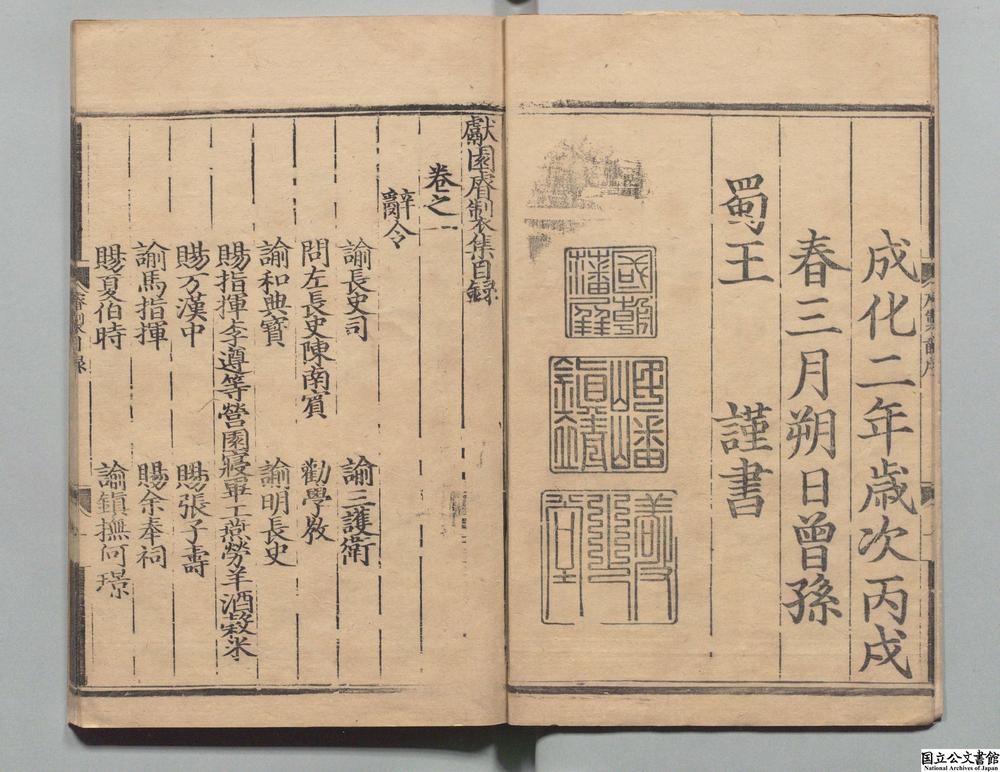 成化二年歲次丙戌
春三月朔日曾孫
蜀王 謹書
獻園睿製集目錄
卷之一
辭令
諭長史司 諭三護衛
問左長史陳南賓 勸學教
諭和典寶 諭明長史
賜指揮李遵等營園寢軍工燕勞羊酒穀米
賜方漢中 賜張子壽
諭馬指揮 賜余奉祠
賜夏伯時 諭鎮撫何璟
国立公文書館
National Archives of Japan